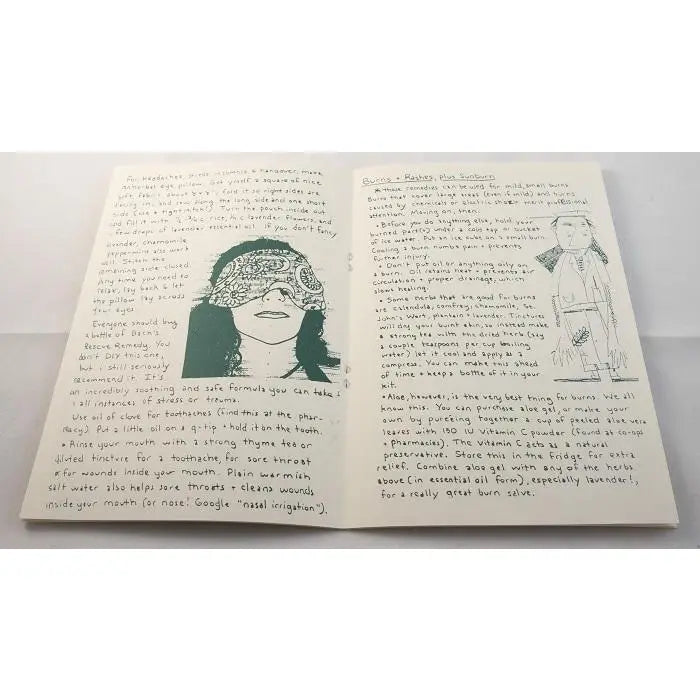 For headaches, stress, insomnia, & hangover, make
an herbal eye pillow. Get yrself a square of nice
soft fabric about 8"x9", fold it so right sides are
facing in, and sew along the long side and one short
side (use a tight stitch). Turn the pouch inside out
and fill it with rice, lavender flowers, and
few drops of lavender essential oil. If you don't fancy
lavender, chamomile
peppermint also work
well. Stitch the
remaining side closed.
Any time you need to
relax, lay back & let
the pillow lay across
your eyes
Everyone should buy
a bottle of Bach's
Rescue Remedy. You
don't DIY this one,
but i still seriously
recommend it. It's
an incredibly soothing and safe formula you can take
all instances of stress or trauma.
Use oil of clove for toothaches (find this at the phar-
macy). Put a little oil on a q-tip + hold it on the tooth.
• Rinse your mouth with a strong thyme tea or
diluted tincture for a toothache, for sore throat
or for wounds inside your mouth. Plain warmish
salt water also helps sore throats + cleans wounds
inside your mouth (or nose! Google "nasal irrigation").
Burns + Rashes, plus Sunburn
* these remedies can be used for mild, small burns.
Burns that cover large areas (even if mild) and burns
caused by chemicals or electric shock merit professional
attention. Moving on, then:
• Before you do anything else, hold your
burned part(s) under a cold tap or bucket
of ice water. Put an ice cube on a small burn.
Cooling a burn numbs pain + prevents
further injury.
• Don't put oil or anything oily on
a burn. Oil retains heat + prevents air
circulation + proper drainage, which
slows healing.
• Some herbs that are good for burns
are calendula, comfrey, chamomile, St.
John's Wort, plantain + lavender. Tinctures
will dry your burnt skin, so instead make
a strong tea with the dried herb (say
a couple teaspoons per cup boiling
water) let it cool and apply as a
compress. You can make this ahead
of time + keep a bottle of it in your
kit.
• Aloe, however, is the very best thing for burns. We all
know this. You can purchase aloe gel, or make your
own by pureéing together a cup of peeled aloe vera
leaves with 150 IU vitamin C powder (found at co-ops
+ pharmacies). The vitamin C acts as a natural
preservative. Store this in the fridge for extra
relief. Combine aloe gel with any of the herbs
above (in essential oil form), especially lavender!,
for a really great burn salve.